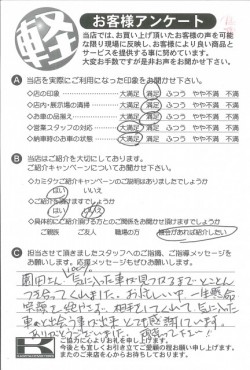 軽
お客様アンケート
当店では、お買い上げ頂いたお客様の声を可能
な限り現場に反映し、お客様により良い商品と
サービスを提供する事に努めています。
大変お手数ですが是非お声をお聞かせ下さい。
A 当店を実際にご利用になった印象をお聞かせ下さい。
◇店の印象 大満足 満足 ふつう やや不満 不満
◇店内・展示場の清掃 大満足 満足 ふつう やや不満 不満
◇お車の品揃え 大満足 満足 ふつう やや不満 不満
◇営業スタッフの対応 大満足 満足 ふつう やや不満 不満
◇納車時のお車の状態 大満足 満足 ふつう やや不満 不満
B 当店はご紹介を大切にしております。
ご紹介キャンペーンについてお聞かせ下さい。
◇カミタケご紹介キャンペーンのご説明はありましたでしょうか
はい いいえ
◇ご紹介キャンペーン
はい
ご親族 ご友人 職場の方 機会があれば紹介したい
C 担当させて頂きましたスタッフへのご指摘、ご指導、メッセージを
お願いします。応援メッセージもぜひお願いします。
気に入った車が見つかるまでとことん
つき合ってくれました。お忙しい中、一生懸命
気に入った
車と出会う事が出来とても感謝しています。
ありがとうございました。
ご協力に心よりお礼を申し上げます。
今後とも宜しくお引き立てご愛顧の程お願い申し上げます。
またのご来店を心からお待ちしております。